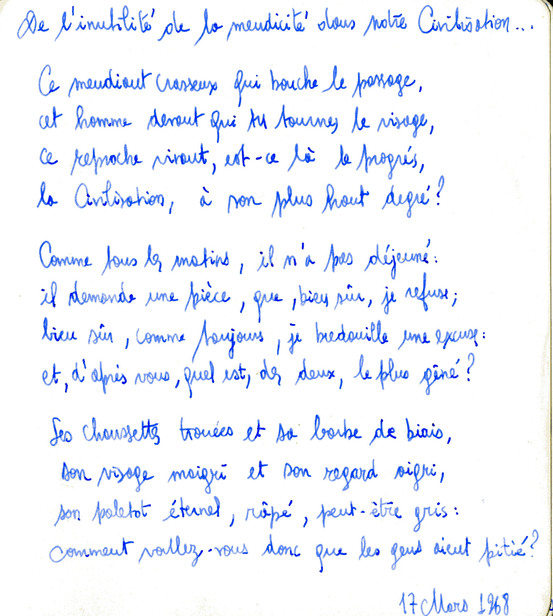 De l'inutilité de la mendicité dans notre Civilisation...
Ce mendiant crasseux qui bouche le passage,
cet homme devant qui tu tournes le visage,
ce reproche vivant, est-ce là le progrés,
la Civilisation, à son plus haut degré?
Comme tous les matins, il n'a pas déjeuné:
il demande une pièce, que, bien sûr, je refuse;
bien sûr, comme toujours, je bredouille une excuse:
et, d'après vous, quel est, des deux, le plus gêné?
Ses chaussettes trouées et sa barbe de biais,
son visage maigri et son regard aigri,
son paletot éternel, râpé, peut-être gris:
comment voulez-vous donc que les gens aient pitié?
17 Mars 1968